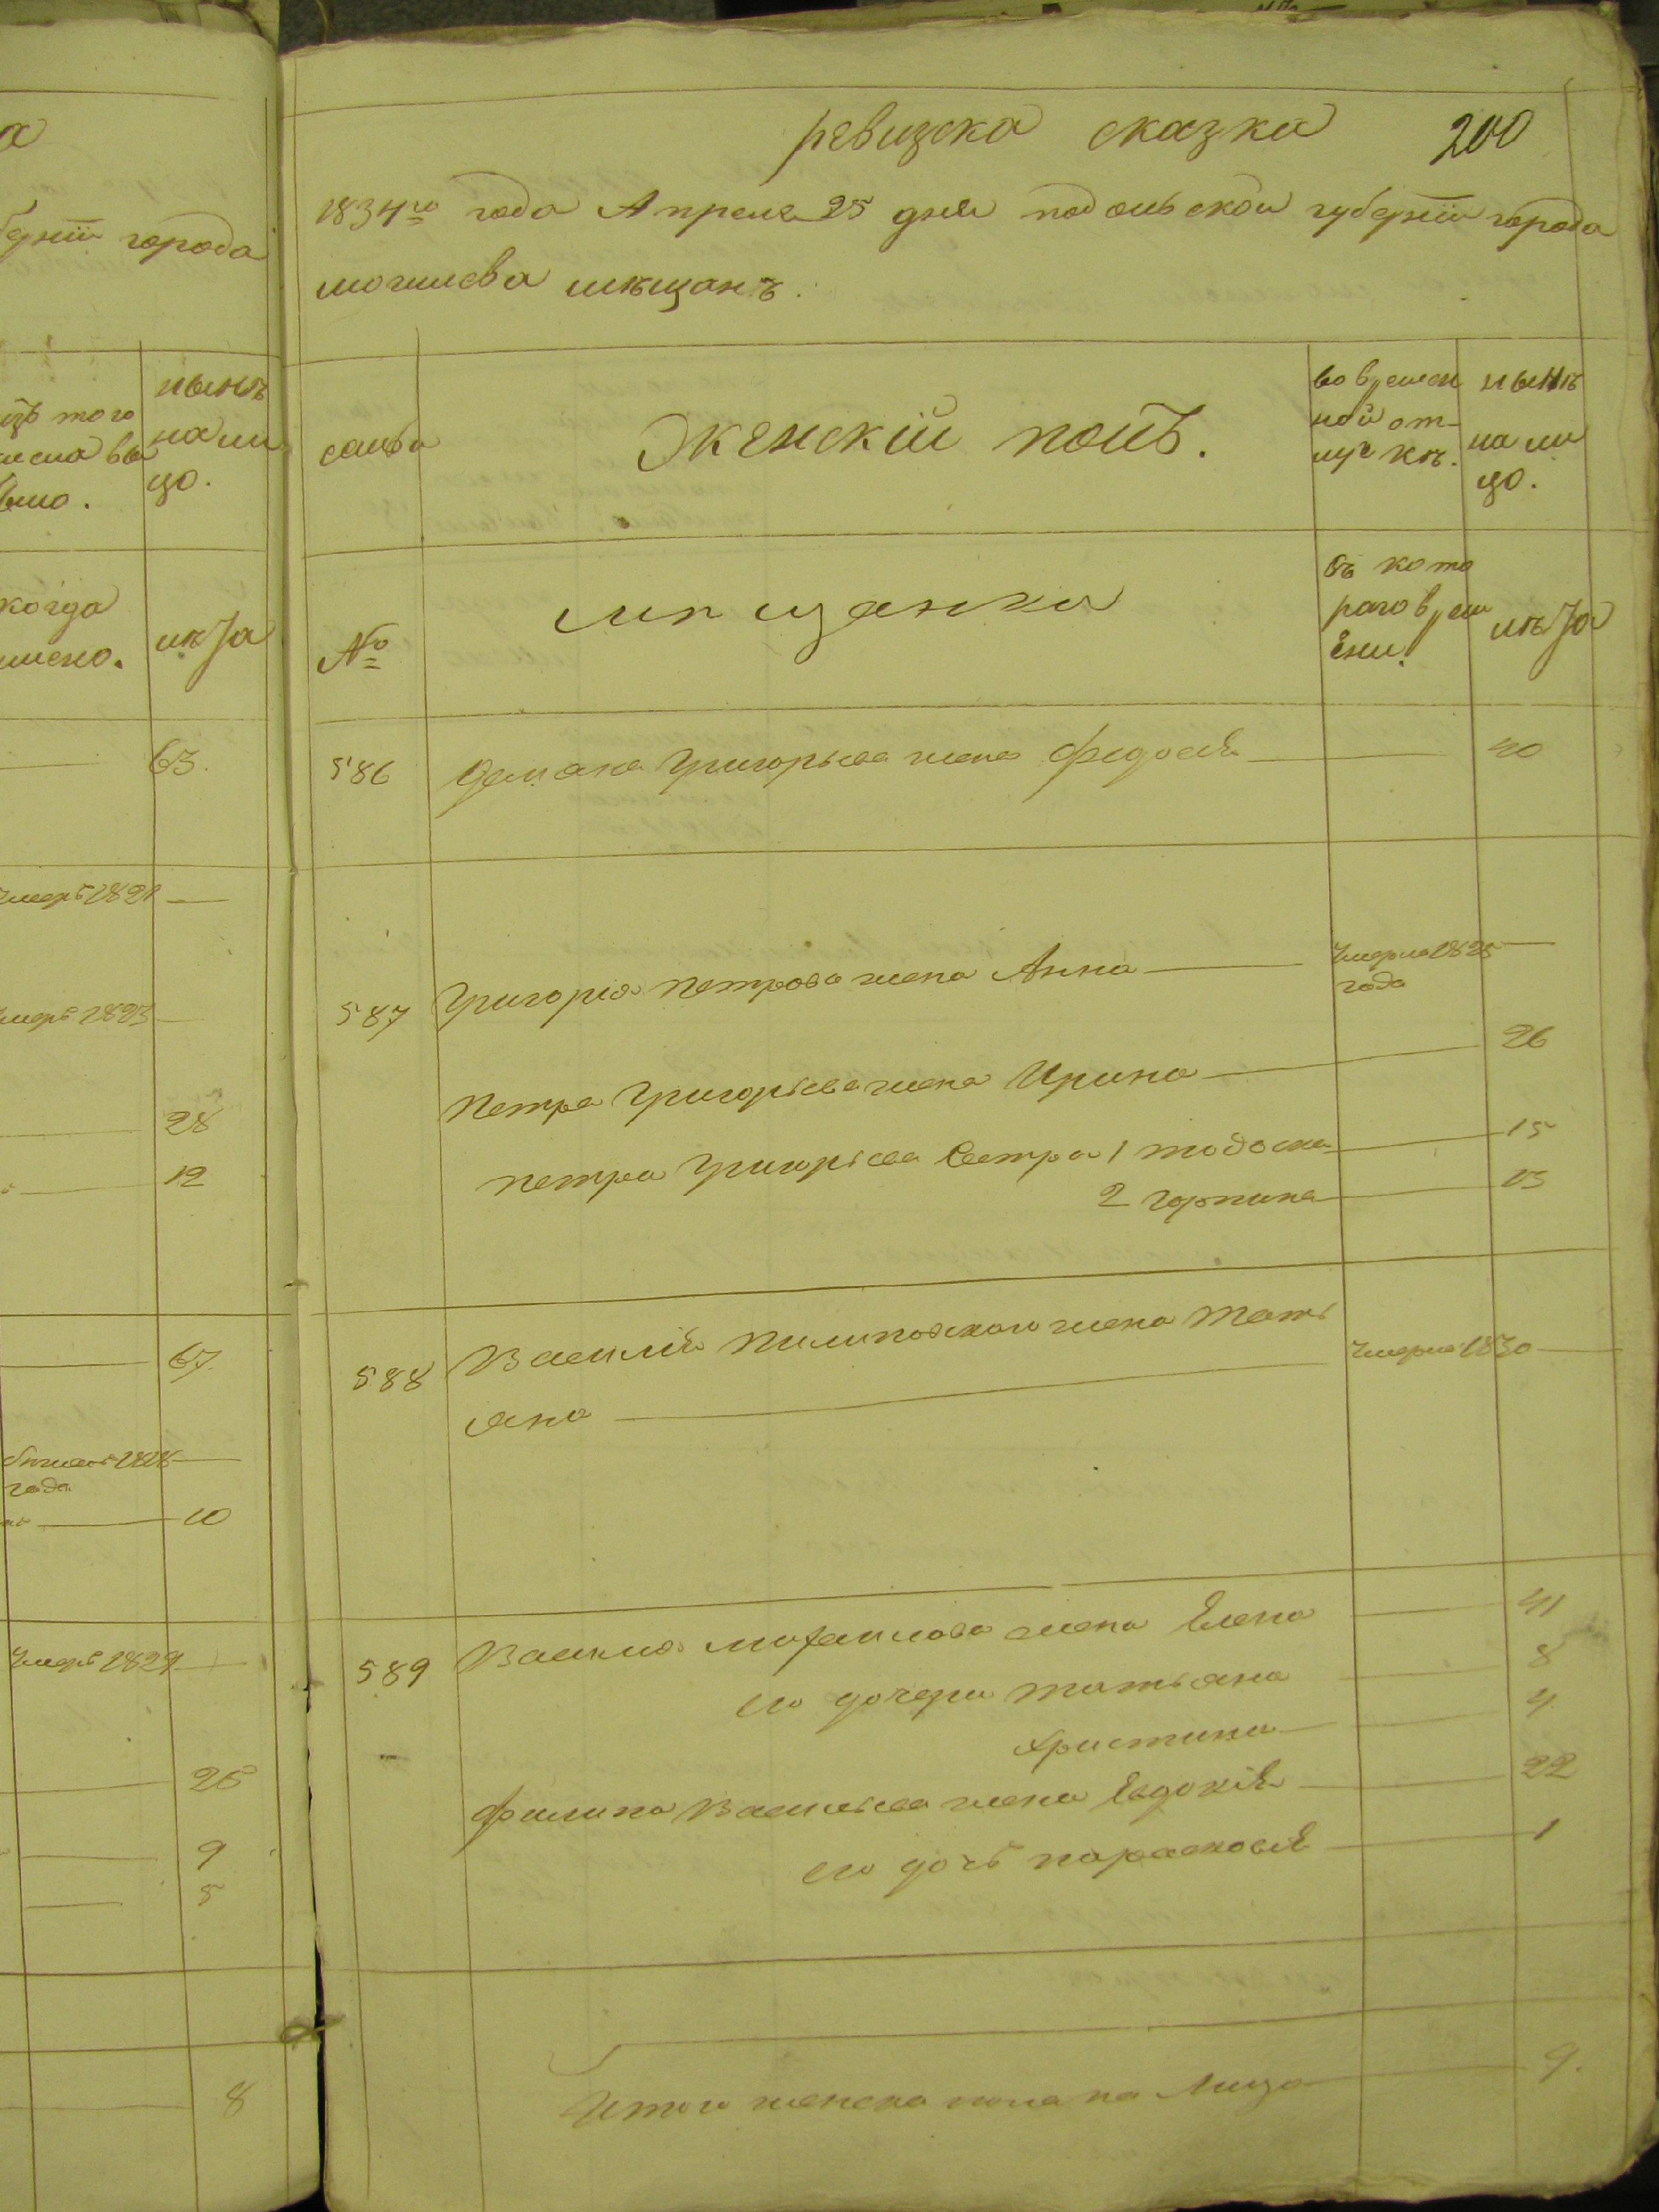 ревизска сказка 200
1834го года Апреля 25 дня подольской губернїи города
могилева мѣщанъ.
семьи
Женскій полъ.
во времен
ной от-
лучкѣ.
нынѣ
на ли
цо.
№
мѣщанки
съ кото
раго врем
ени.
лѣта
586 Демяна Григорьева жена Федосія 40
587 Григорія Петрова жена Анна умерла 1825
года
Петра Григорьева жена Ирина 26
Петра Григорьева сестра 1 Тодоска 15
2 Горпина 13
588 Василія Пилиповскаго жена Тать
яна умерла 1830
589 Василия Михайлова жена Елена 41
его дочери Татьяна 8
Христина 4
Филипа Васильева жена Евдокія 22
его дочь Парасковія 1
Итого женска пола на Лицо 9.
а
берніи города
изъ того
числа вы
было.
нынѣ
на ли
цо.
когда
лѣта
63.
умеръ 1821
умеръ 1823
28
12
67.
года
10
умеръ 1829
25
9
5
8